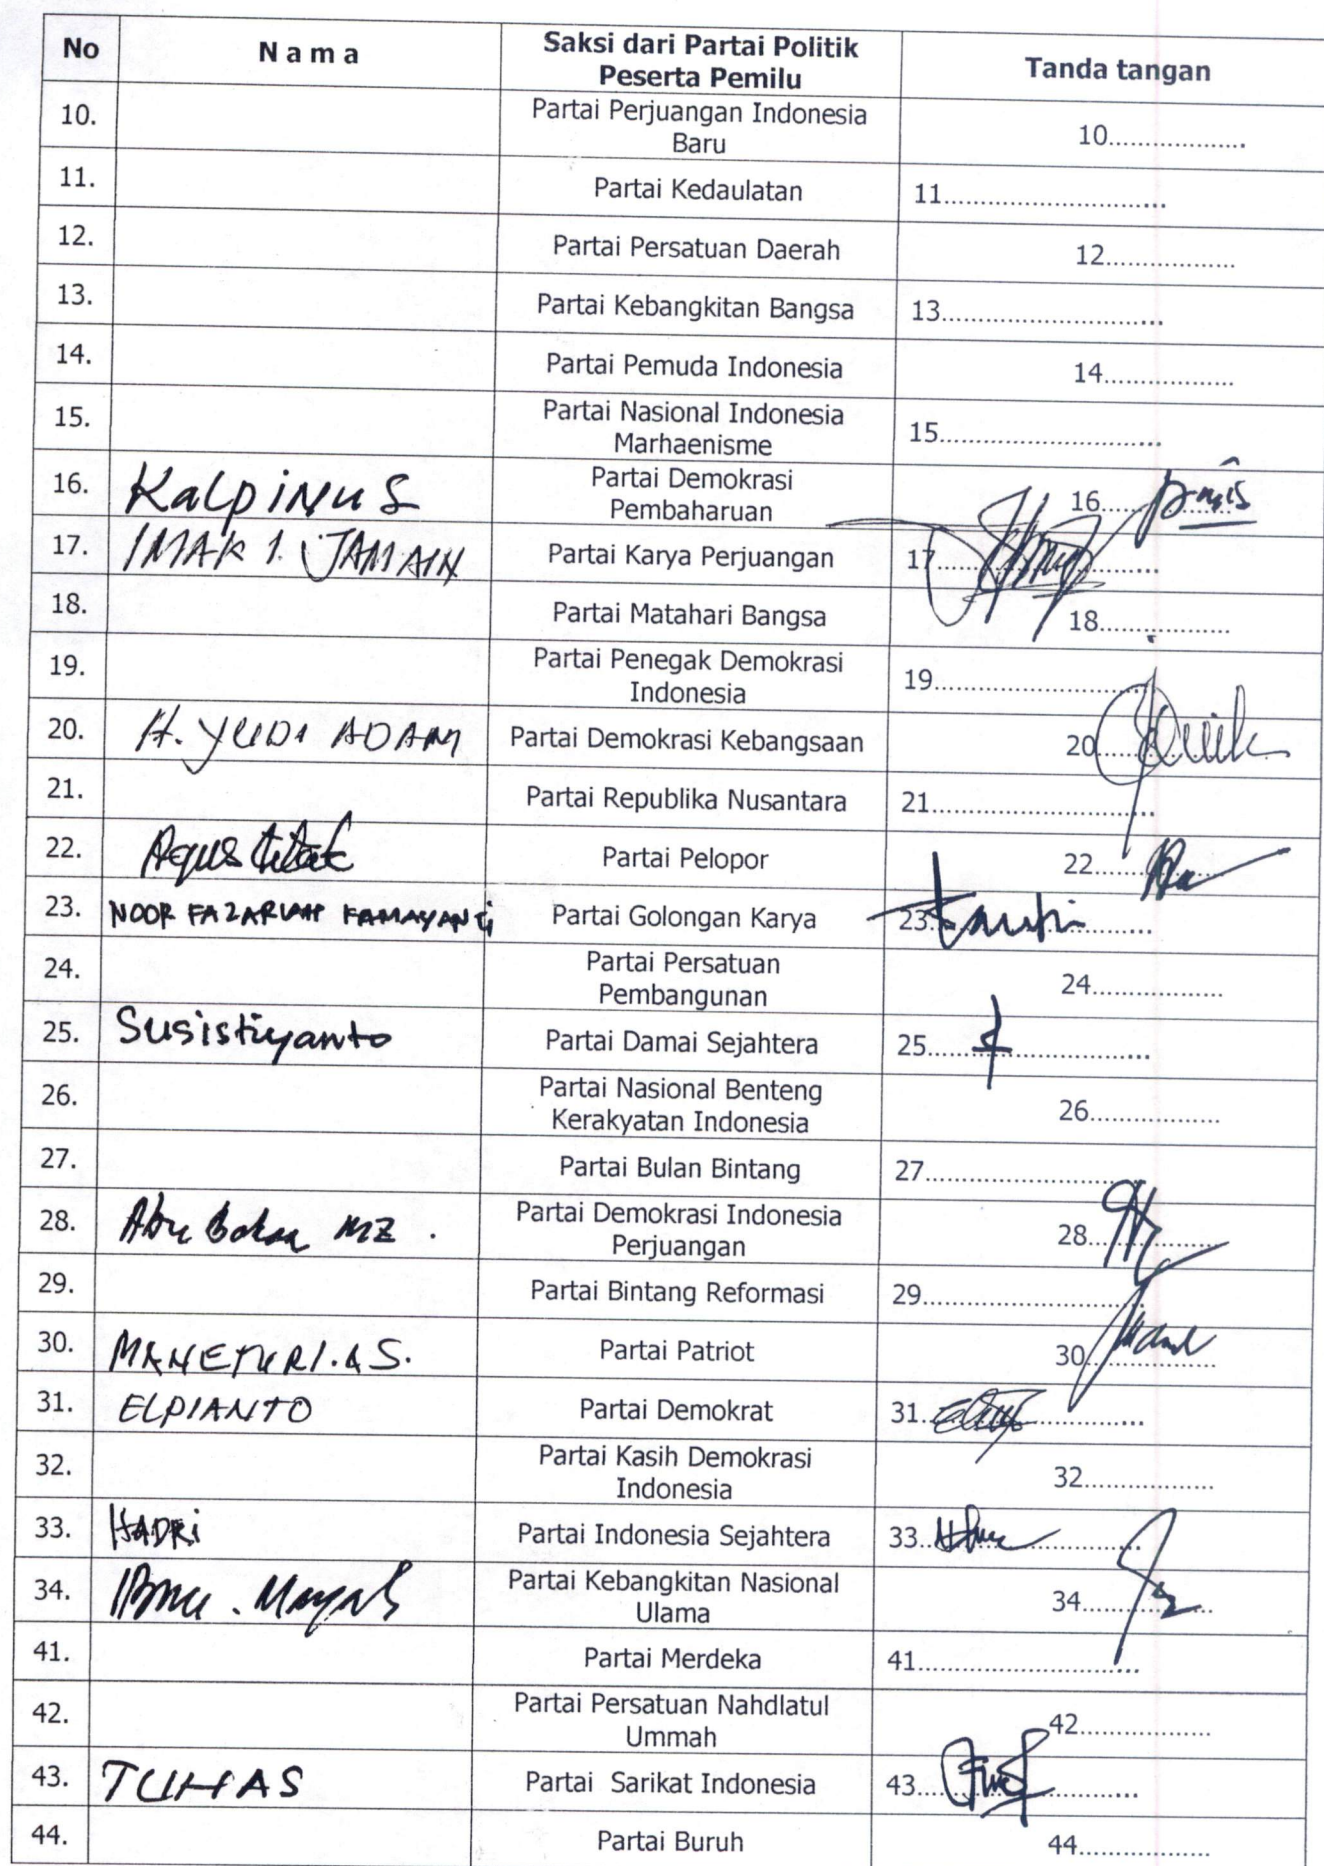 No
N a m a
Saksi dari Partai Politik
Peserta Pemilu
Tanda tangan
10.
Partai Perjuangan Indonesia
Baru
10..................
11.
Partai Kedaulatan
11............................
12.
Partai Persatuan Daerah
12.................
13.
Partai Kebangkitan Bangsa
13............................
14.
Partai Pemuda Indonesia
14.................
15.
Partai Nasional Indonesia
Marhaenisme
15............................
16.
Kalpinus
Partai Demokrasi
Pembaharuan
16.................
17.
IMAK 1. JAMAIN
Partai Karya Perjuangan
17............................
18.
Partai Matahari Bangsa
18.................
19.
Partai Penegak Demokrasi
Indonesia
19............................
20.
H. YUDI ADAM
Partai Demokrasi Kebangsaan
20.................
21.
Partai Republika Nusantara
21............................
22.
Agus
Partai Pelopor
22.................
23.
NOOR FAZARIAH FAMAYANTi
Partai Golongan Karya
23............................
24.
Partai Persatuan
Pembangunan
24.................
25.
Susistiyanto
Partai Damai Sejahtera
25............................
26.
Partai Nasional Benteng
Kerakyatan Indonesia
26.................
27.
Partai Bulan Bintang
27............................
28.
Abu Bakar MZ.
Partai Demokrasi Indonesia
Perjuangan
28.................
29.
Partai Bintang Reformasi
29............................
30.
Partai Patriot
30.................
31.
ELPIANTO
Partai Demokrat
31............................
32.
Partai Kasih Demokrasi
Indonesia
32.................
33.
HADRi
Partai Indonesia Sejahtera
33............................
34.
Partai Kebangkitan Nasional
Ulama
34.................
41.
Partai Merdeka
41............................
42.
Partai Persatuan Nahdlatul
Ummah
42.................
43.
TUHAS
Partai Sarikat Indonesia
43............................
44.
Partai Buruh
44.................